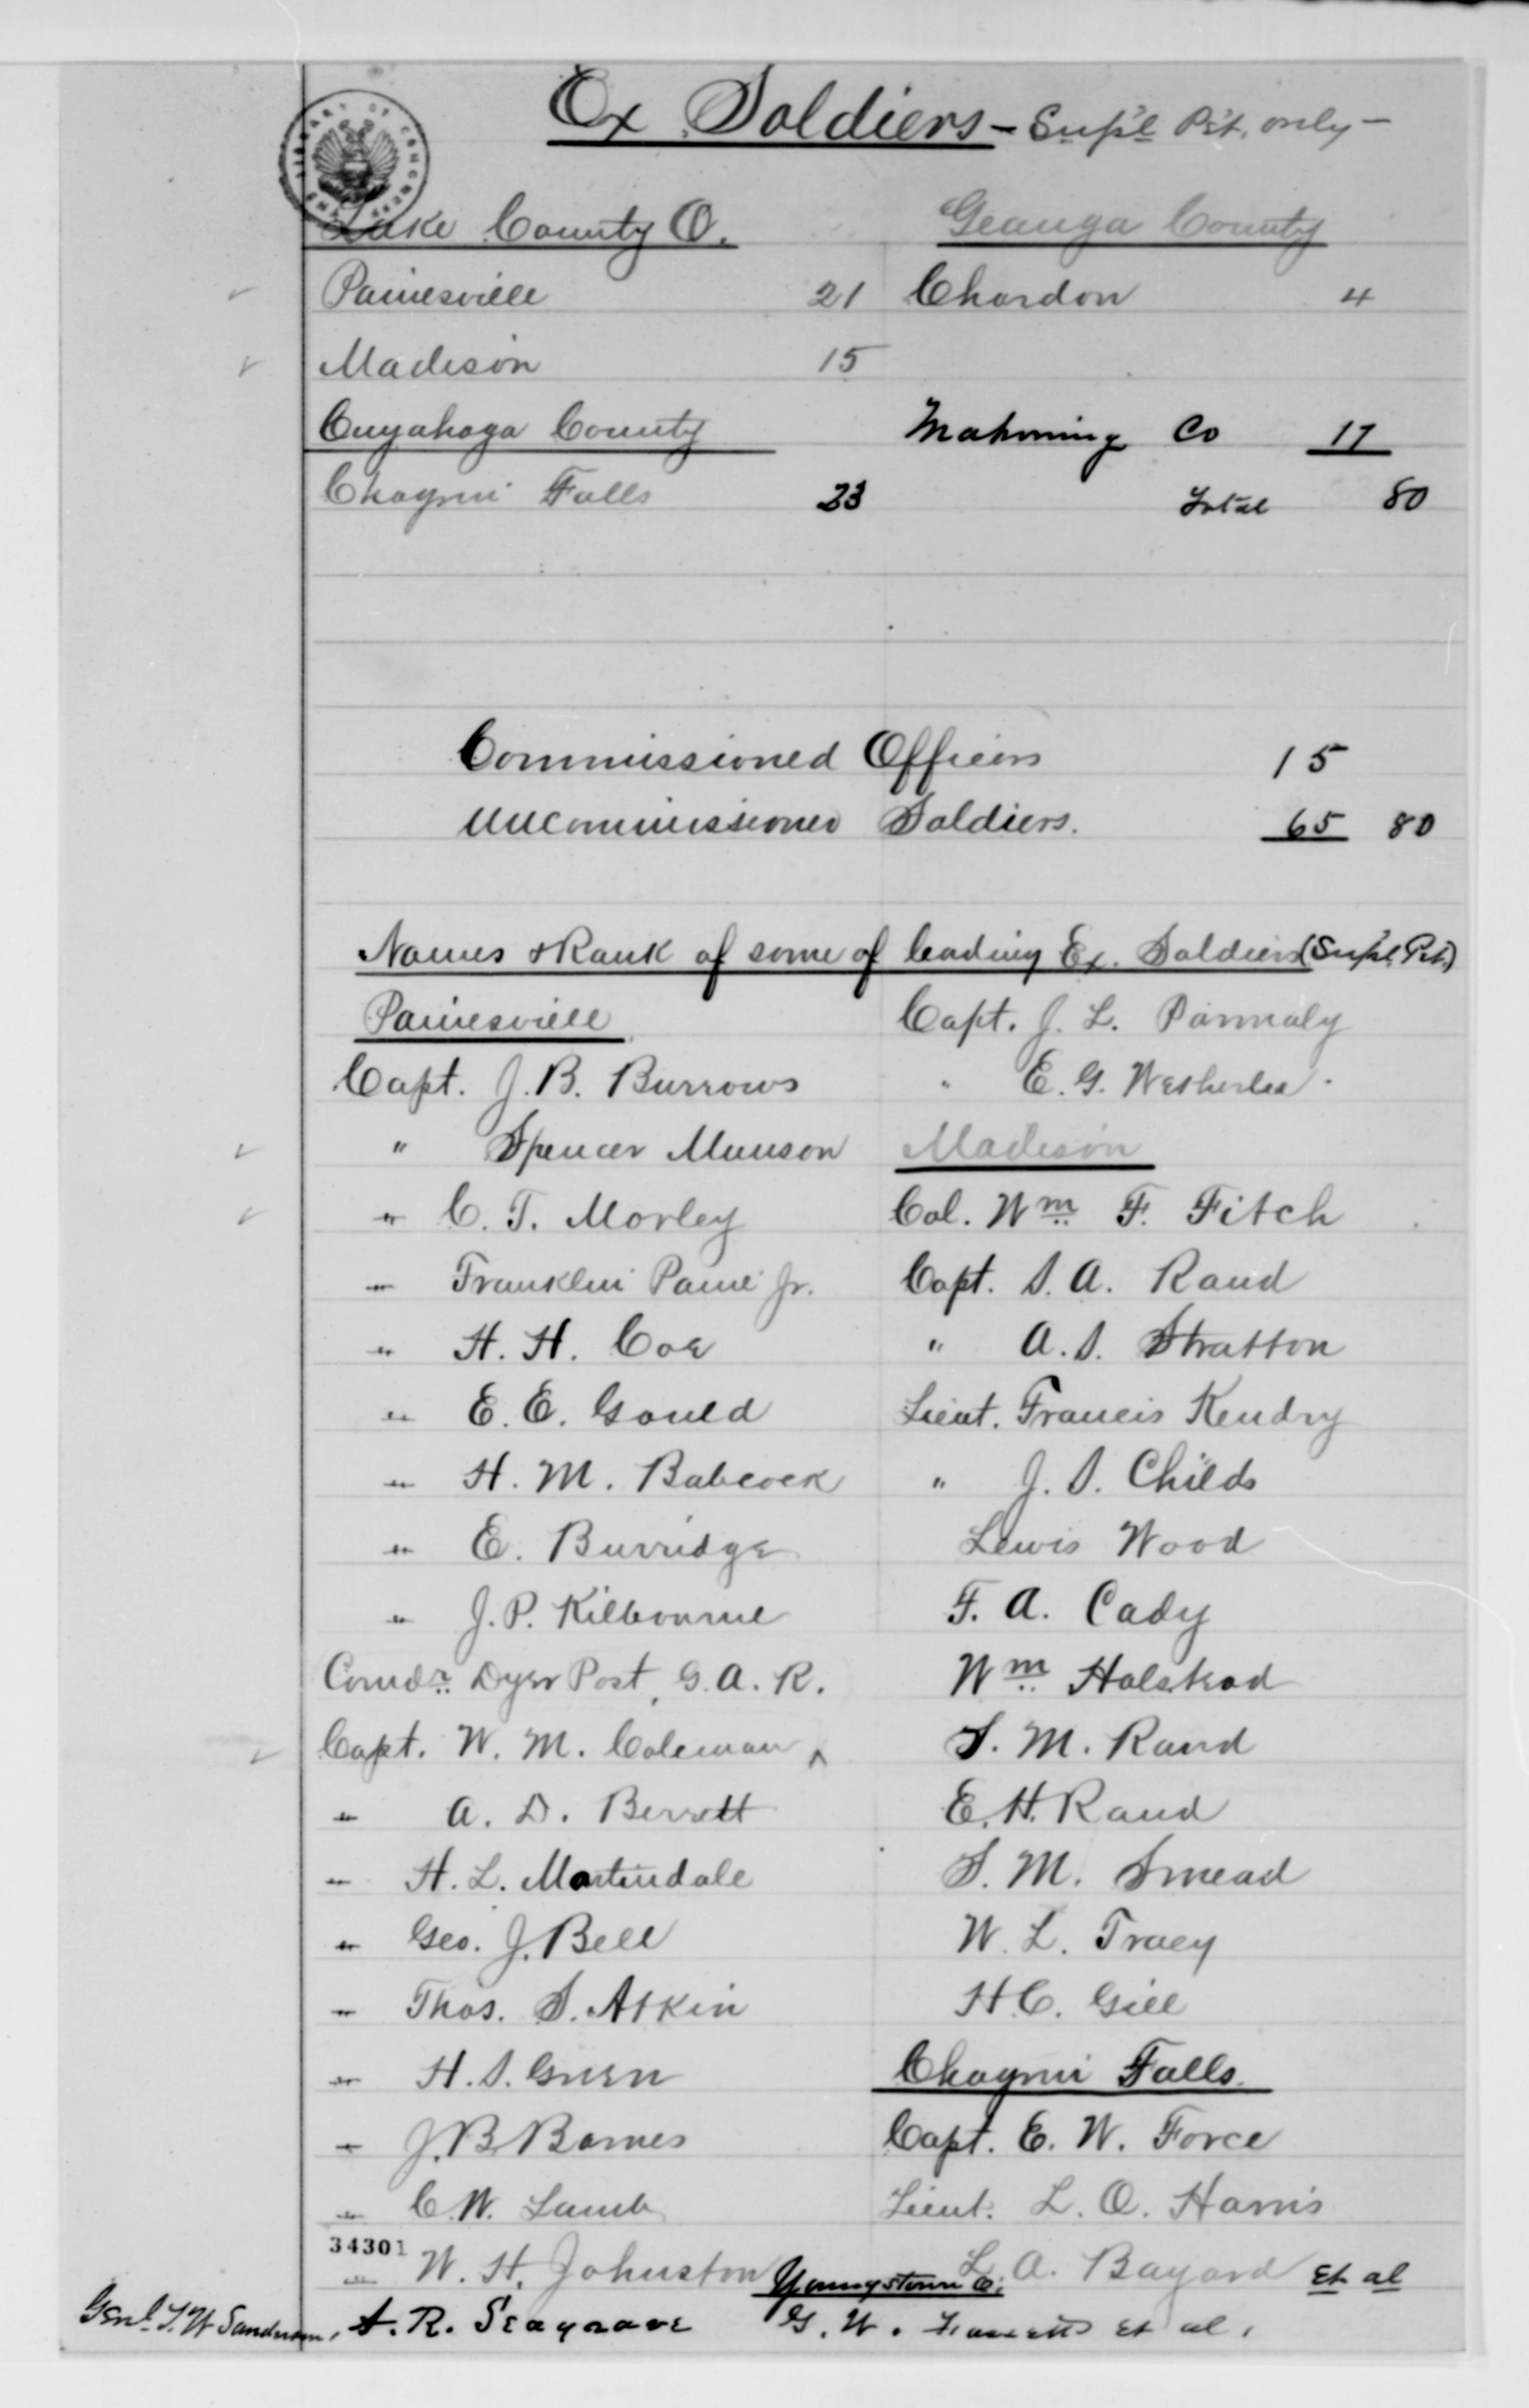 Ex Soldiers - Sup'l Pet. only -
THE LIBRARY OF CONGRESS
Lake County O.
Painesville 21
Madison 15
Cuyahoga County
Chagrin Falls 23
Geauga County
Chardon 4
Mahoning Co 17
Total 80
Commissioned Officers 15
Uncommissioned Soldiers. 65 80
Names & Rank of some of leading Ex. Soldiers (Sup'l. Pet.)
Painesville
Capt. J. B. Burrows
" Spencer Munson
" C. T. Morley
" Franklin Paine Jr.
" H. H. Coe
" E. E. Gould
" H. M. Babcock
" E. Burridge
" J. P. Kilbourne
Comdr. Dyer Post, G. A. R.
Capt. W. M. Coleman ^
" A. D. Berrett
" H. L. Martindale
" Geo. J. Bell
" Thos. S. Atkin
" H. S. Green
" J. B. Barnes
" C. W. Lamb
34301
" W. H. Johnston
Capt. J. L. Parmaly
" E. G. Wetherbee
Madison
Col. Wm F. Fitch
Capt. S. A. Rand
" A. S. Stratton
Lieut. Francis Kendry
" J. S. Childs
Lewis Wood
F. A. Cady
Wm Halstead
S. M. Rand
E. H. Rand
S. M. Smead
W. L. Tracy
H. C. Gill
Chagrin Falls.
Capt. E. W. Force
Lieut. L. O. Harris
L. A. Bayard et al
Youngstown O;
Genl. T. W. Sanderson, A. R. Seagrave G. W. et al,